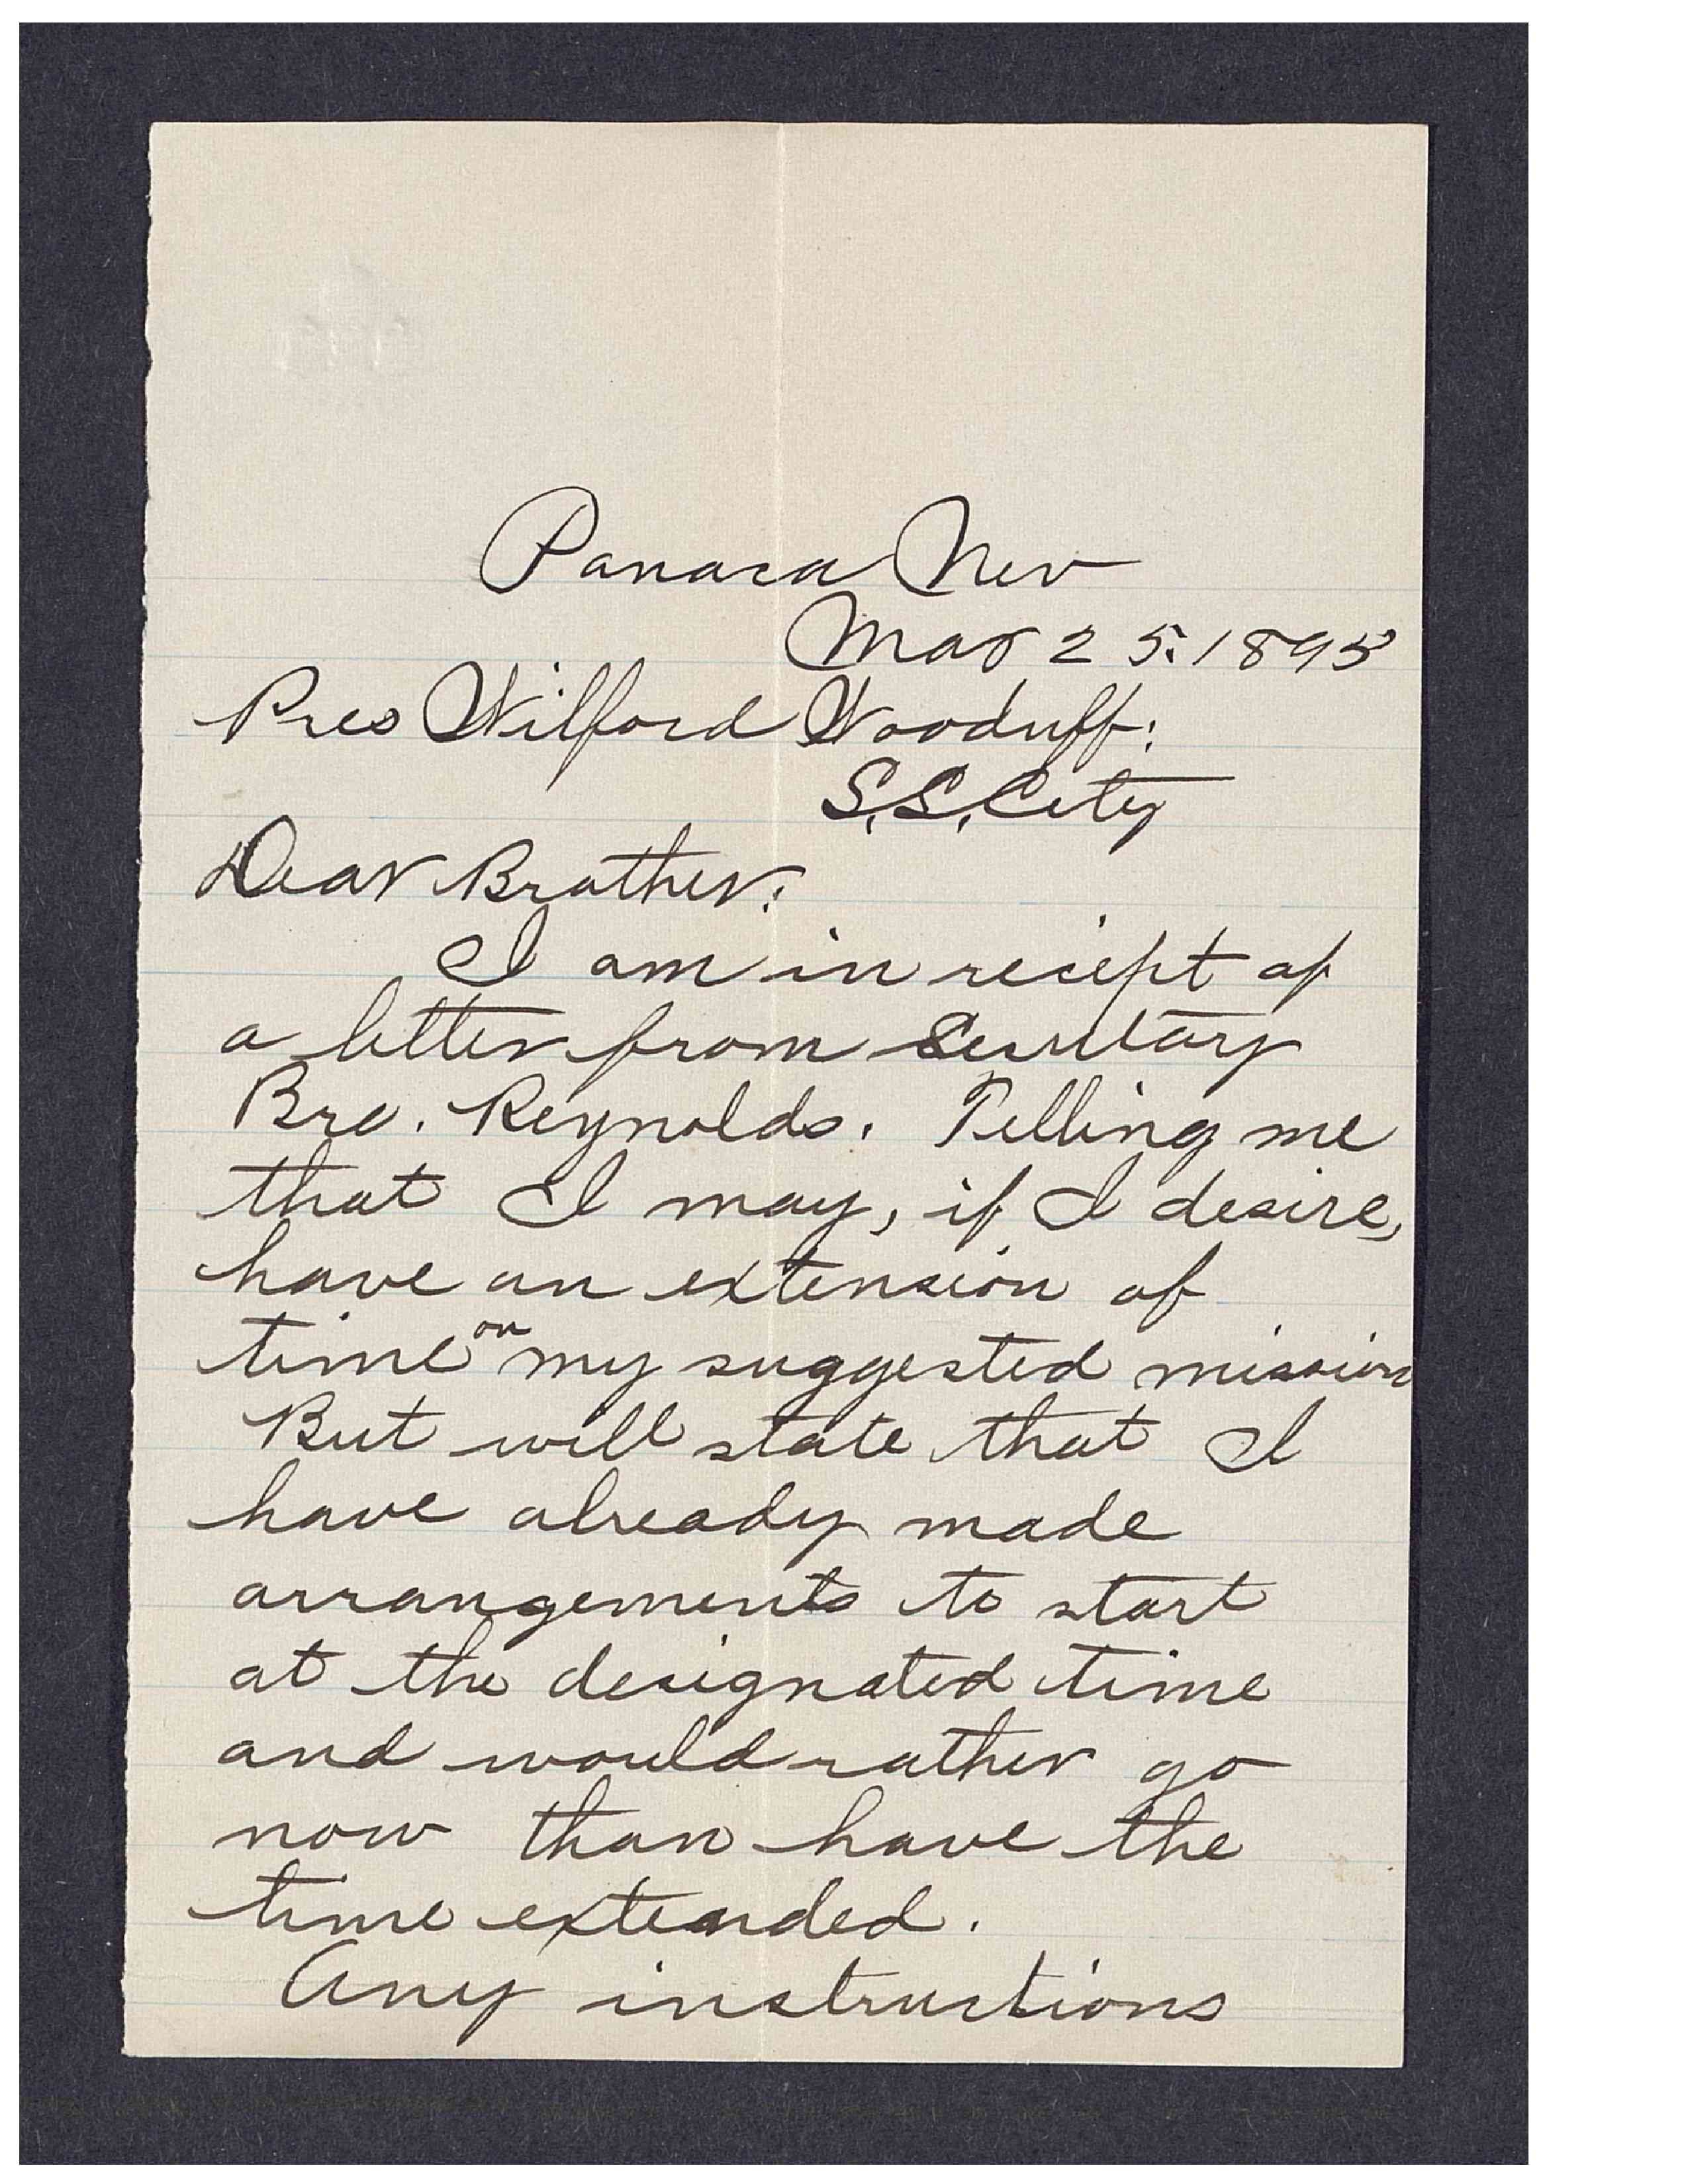 Panaca Nev
Mar 25. 1895
Pres Wilford Woodruff:
S.L. City
Dear Brother:
I am in reciept of
a letter from Secretary
Bro. Reynolds. Telling me
that I may, if I desire,
have an extension of
time on my suggested mission
But will state that I
have already made
arrangements to start
at the designated time
and would rather go
now than have the
time extended.
Any instructions